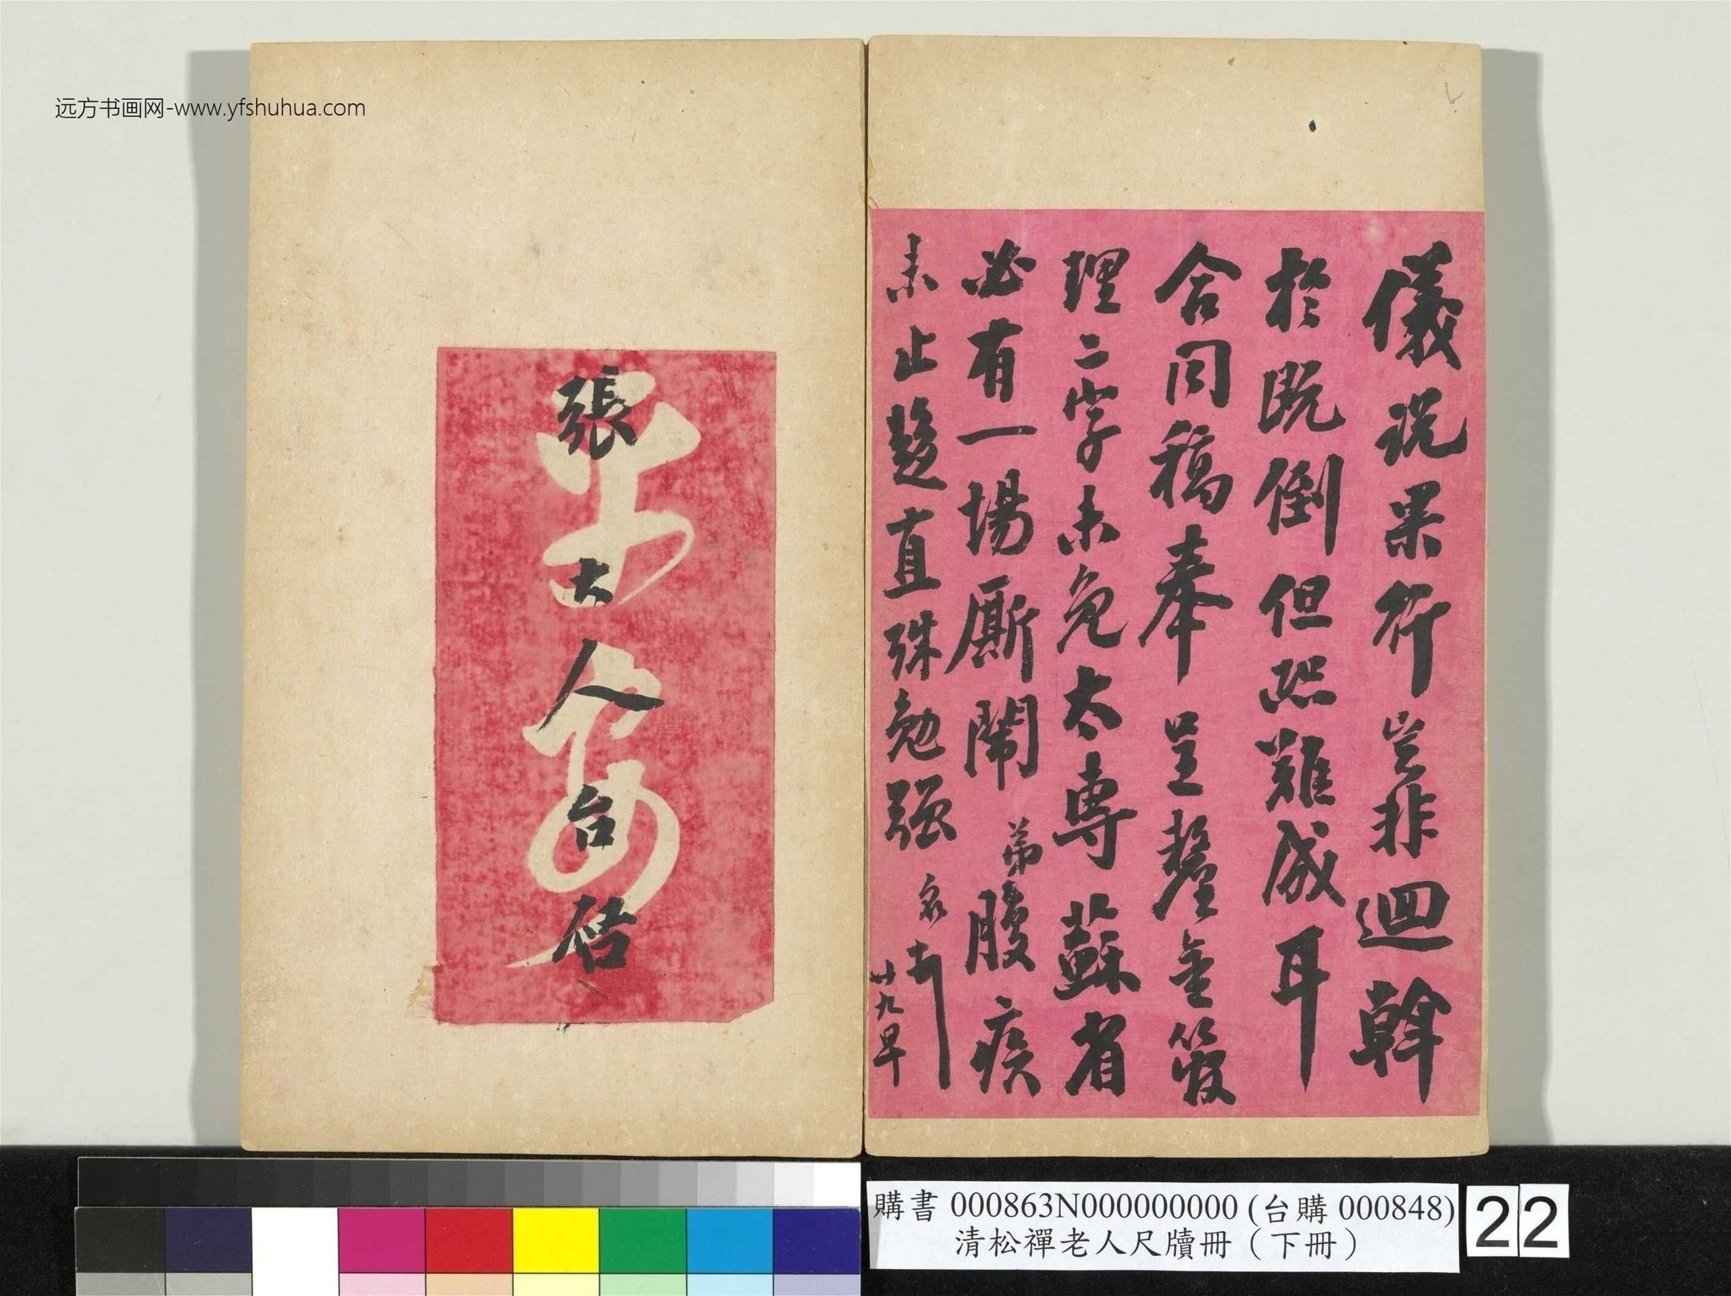 远方书画网-www.yfshuhua.com
儀說果行豈非迴斡
於既倒但恐難成耳
合同稿奉呈鏊金管
理二字未免太專蘇省
必有一場厮鬧弟腹疾
未止趨直殊勉强名
廿九早
張大人台啓
購書 000863N000000000 (台購 000848)
清松禪老人尺牘冊（下冊）
22